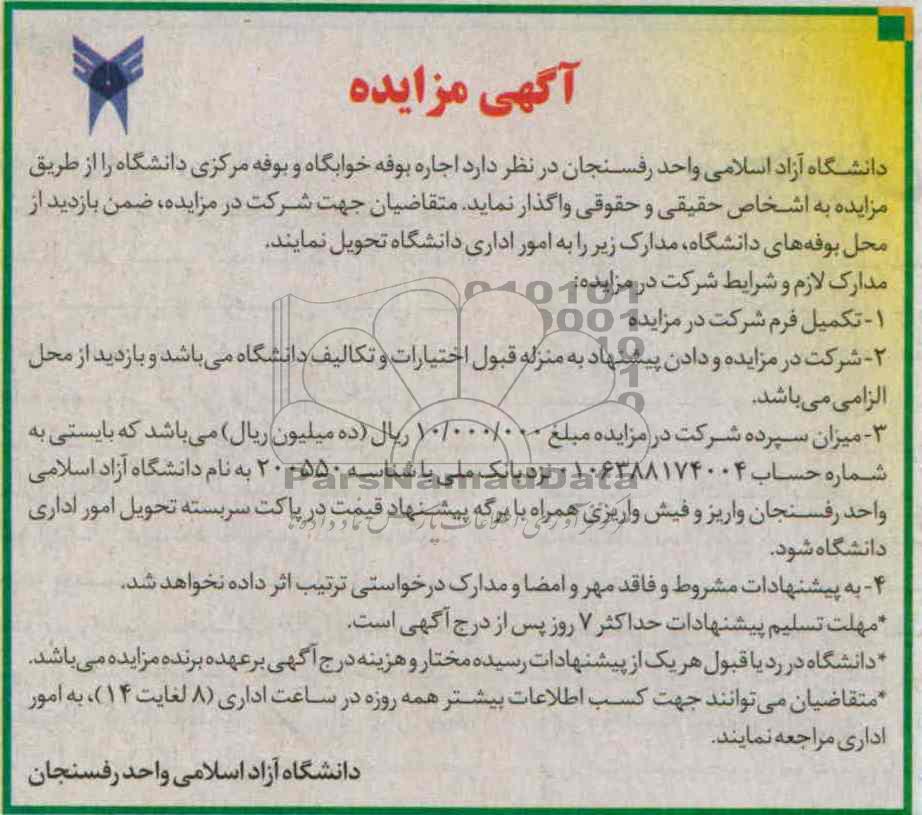 آگهی مزایده
دانشگاه آزاد اسلامی واحد رفسنجان در نظر دارد اجاره بوفه خوابگاه و بوفه مرکزی دانشگاه را از طریق
مزایده به اشخاص حقیقی و حقوقی واگذار نماید. متقاضیان جهت شرکت در مزایده، ضمن بازدید از
محل بوفه‌های دانشگاه، مدارک زیر را به امور اداری دانشگاه تحویل نمایند.
مدارک لازم و شرایط شرکت در مزایده:
۱- تکمیل فرم شرکت در مزایده
۲- شرکت در مزایده و دادن پیشنهاد به منزله قبول اختیارات و تکالیف دانشگاه می‌باشد و بازدید از محل
الزامی می‌باشد.
۳- میزان سپرده شرکت در مزایده مبلغ ۱۰/۰۰۰/۰۰۰ ریال (ده میلیون ریال) می‌باشد که بایستی به
شماره حساب ۰۱۰۶۳۸۸۱۷۴۰۰۴ نزد بانک ملی با شناسه ۲۰۰۵۵۰ به نام دانشگاه آزاد اسلامی
واحد رفسنجان واریز و فیش واریزی همراه با برگه پیشنهاد قیمت در پاکت سربسته تحویل امور اداری
دانشگاه شود.
۴- به پیشنهادات مشروط و فاقد مهر و امضا و مدارک درخواستی ترتیب اثر داده نخواهد شد.
*مهلت تسلیم پیشنهادات حداکثر ۷ روز پس از درج آگهی است.
*دانشگاه در رد یا قبول هر یک از پیشنهادات رسیده مختار و هزینه درج آگهی بر عهده برنده مزایده می‌باشد.
*متقاضیان می‌توانند جهت کسب اطلاعات بیشتر همه روزه در ساعت اداری (۸ لغایت ۱۴)، به امور
اداری مراجعه نمایند.
دانشگاه آزاد اسلامی واحد رفسنجان
ParsNamadData